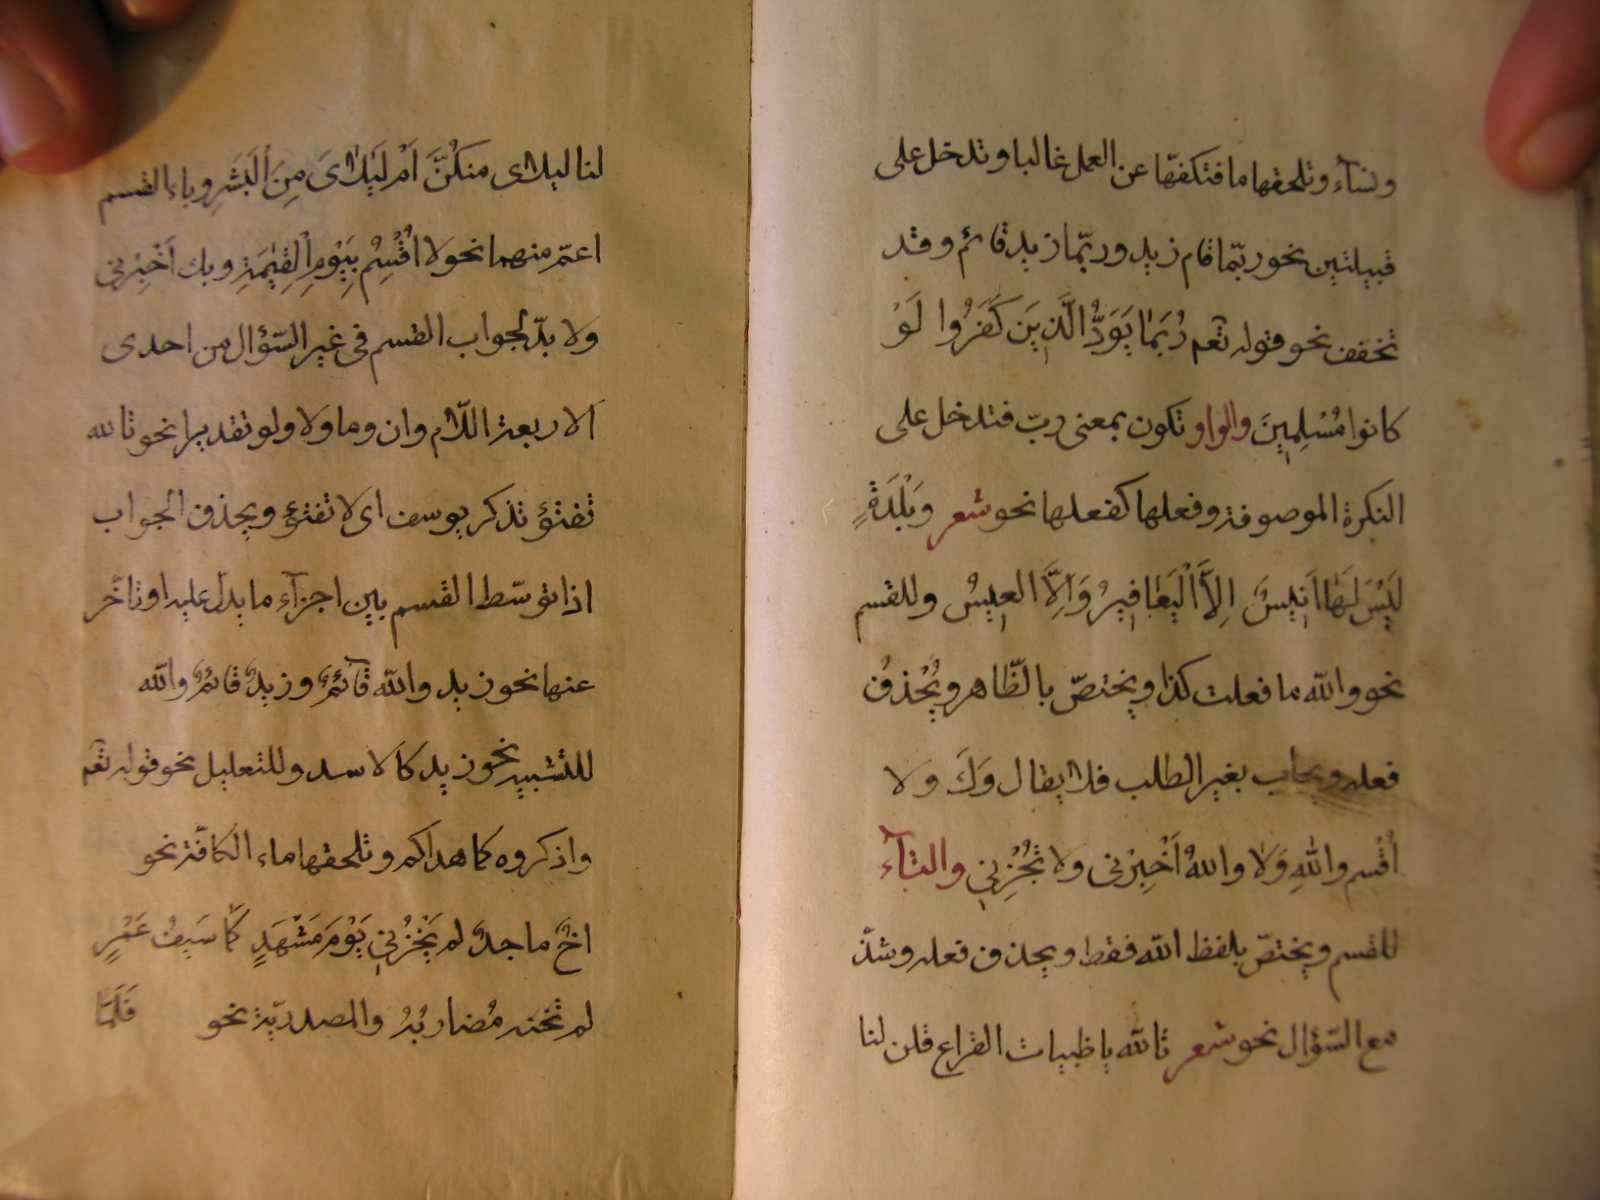 ونساء وتلحقها ما فتكفّها عن العمل غالبا وتدخل على
قبيلتين نحو ربّما قام زيد وربّما زيد قائم وقد
تخفف نحو قوله تعم رُبَمَا يَوَدُّ الَّذِينَ كَفَرُوا لَوْ
كانوا مُسْلِمِينَ والواو تكون بمعنى ربّ فتدخل على
النكرة الموصوفة وفعلها كفعلها نحو شعر وَبَلْدَةٍ
لَيْسَ لَهَا اَنِيسُ اِلاَّ الْيَعَافِيرُ وَاِلاَّ العِيسُ وللقسم
نحو والله ما فعلت كذا ويختصّ بالظّاهر ويُحْذف
فعله ويجاب بغير الطلب فلا يقال وَكَ ولا
اُقْسم واللهِ وَلا واللهِ اَخْبِرْنى ولا تَجُزْنِي والتآء
للقسم ويختصّ بلفظ اللّه فقط ويحذف فعله وشذّ
مع السّؤال نحو شعر تاللّه ياظبيات القاع قلن لنا
لنا ليلاى منكُنَّ اَمْ لَيْلاىَ مِنَ الْبَشَرِ وباء القسم
اعمّ منهما نحو لا اُقْسِمُ بِيَوْمِ الْقِيٰمَةِ وبك اَخْبِرْنِي
ولا بدّ لجواب القسم فى غير السّؤال من احدى
الاربعة اللّام وان وما ولا ولو تقديرا نحو تالله
تفتؤ تذكر يوسف اى لا تفتؤ ويحذف الجواب
اذا توسّط القسم بين اجزآء ما يدلّ عليه او تاخّر
عنها نحو زيد واللّه قآئمٌ وزيدٌ قائمٌ واللّه
للتشبيه نحو زيد كالاسد وللتعليل نحو قوله تعم
واذكروه كما هداكم وتلحقها ماء الكافّة نحو
اخٌ ماجدٌ لم يَخْزُنِي يَوْمَ مَشْهَدٍ كَمَا سَيفُ عَمْرٍ
لم تخنه مُضاربُهُ والمصدريّة نحو
فَلَمَّا